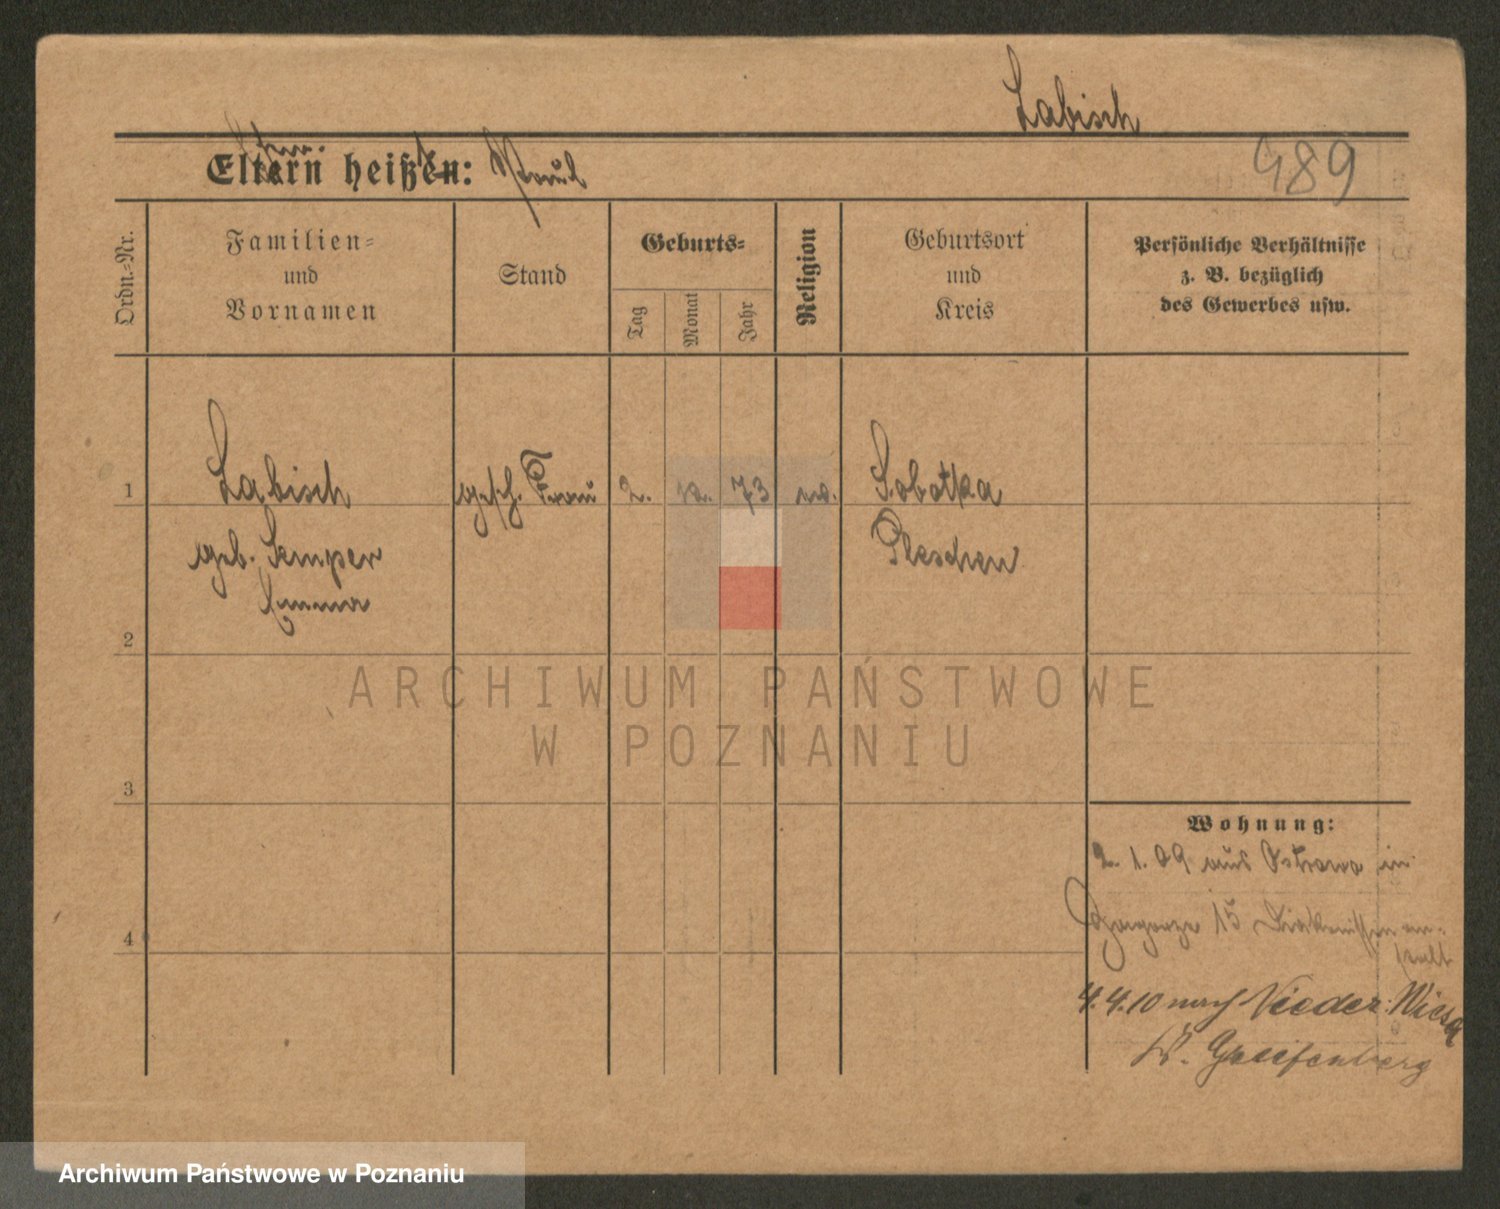 Labisch
Eltern heißen: Paul
489
Ordn.-Nr.
Familien-
und
Vornamen
Stand
Geburts-
Tag
Monat
Jahr
Religion
Geburtsort
und
Kreis
Persönliche Verhältnisse
z. B. bezüglich
des Gewerbes usw.
1
Labisch
gesch. Frau
2.
73
Sobotka
geb. Semper
Pleschen
Emma
2
ARCHIWUM PAŃSTWOWE
W POZNANIU
3
Wohnung:
2. 1. 09 aus Ostrowo in
15 Diakonissen an-
stalt
4
4.4.10 nach Nieder Wiesa
Kr. Greifenberg
Archiwum Państwowe w Poznaniu